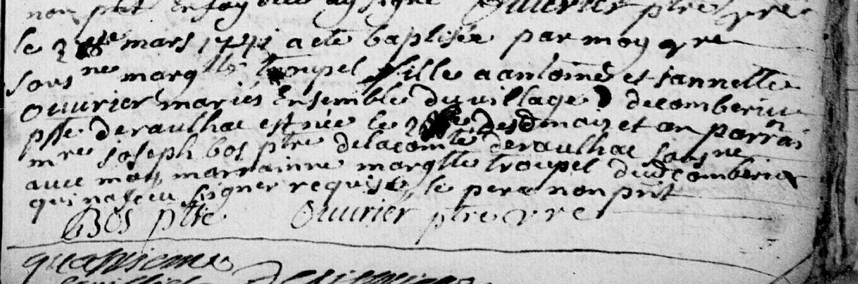 non pnt en foy de quoy signe Ouvrier ptre vre
le 2 mars a ete baptisée par moy vre
sous ne margtte troupel fille a antoine et jannette
Ouvrier mariés ensemble du village de comberiu
psse de raulhac est née le 2 des d mois et an parrai
mre joseph bos ptre de la comté de raulhac sous ne
avec moy marrainne margtte troupel du d comberiu
qui na sceu signer requise le pere non pnt
Bos ptre Ouvrier ptre vre
quatrieme